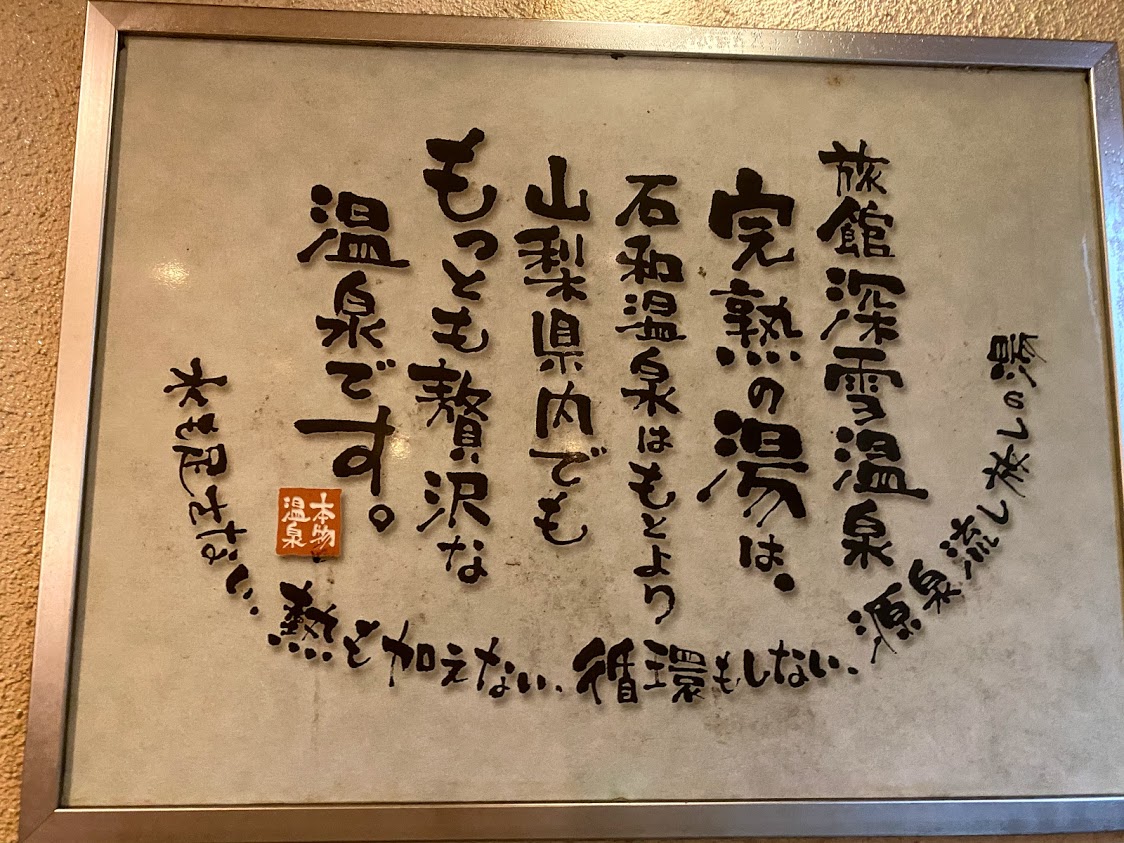 旅館深雪温泉
完熟の湯は。
石和温泉はもとより
山梨県内でも
もっとも贅沢な
温泉です。
本物
温泉
水を足さない、熱を加えない、循環もしない、源泉流し放しの湯